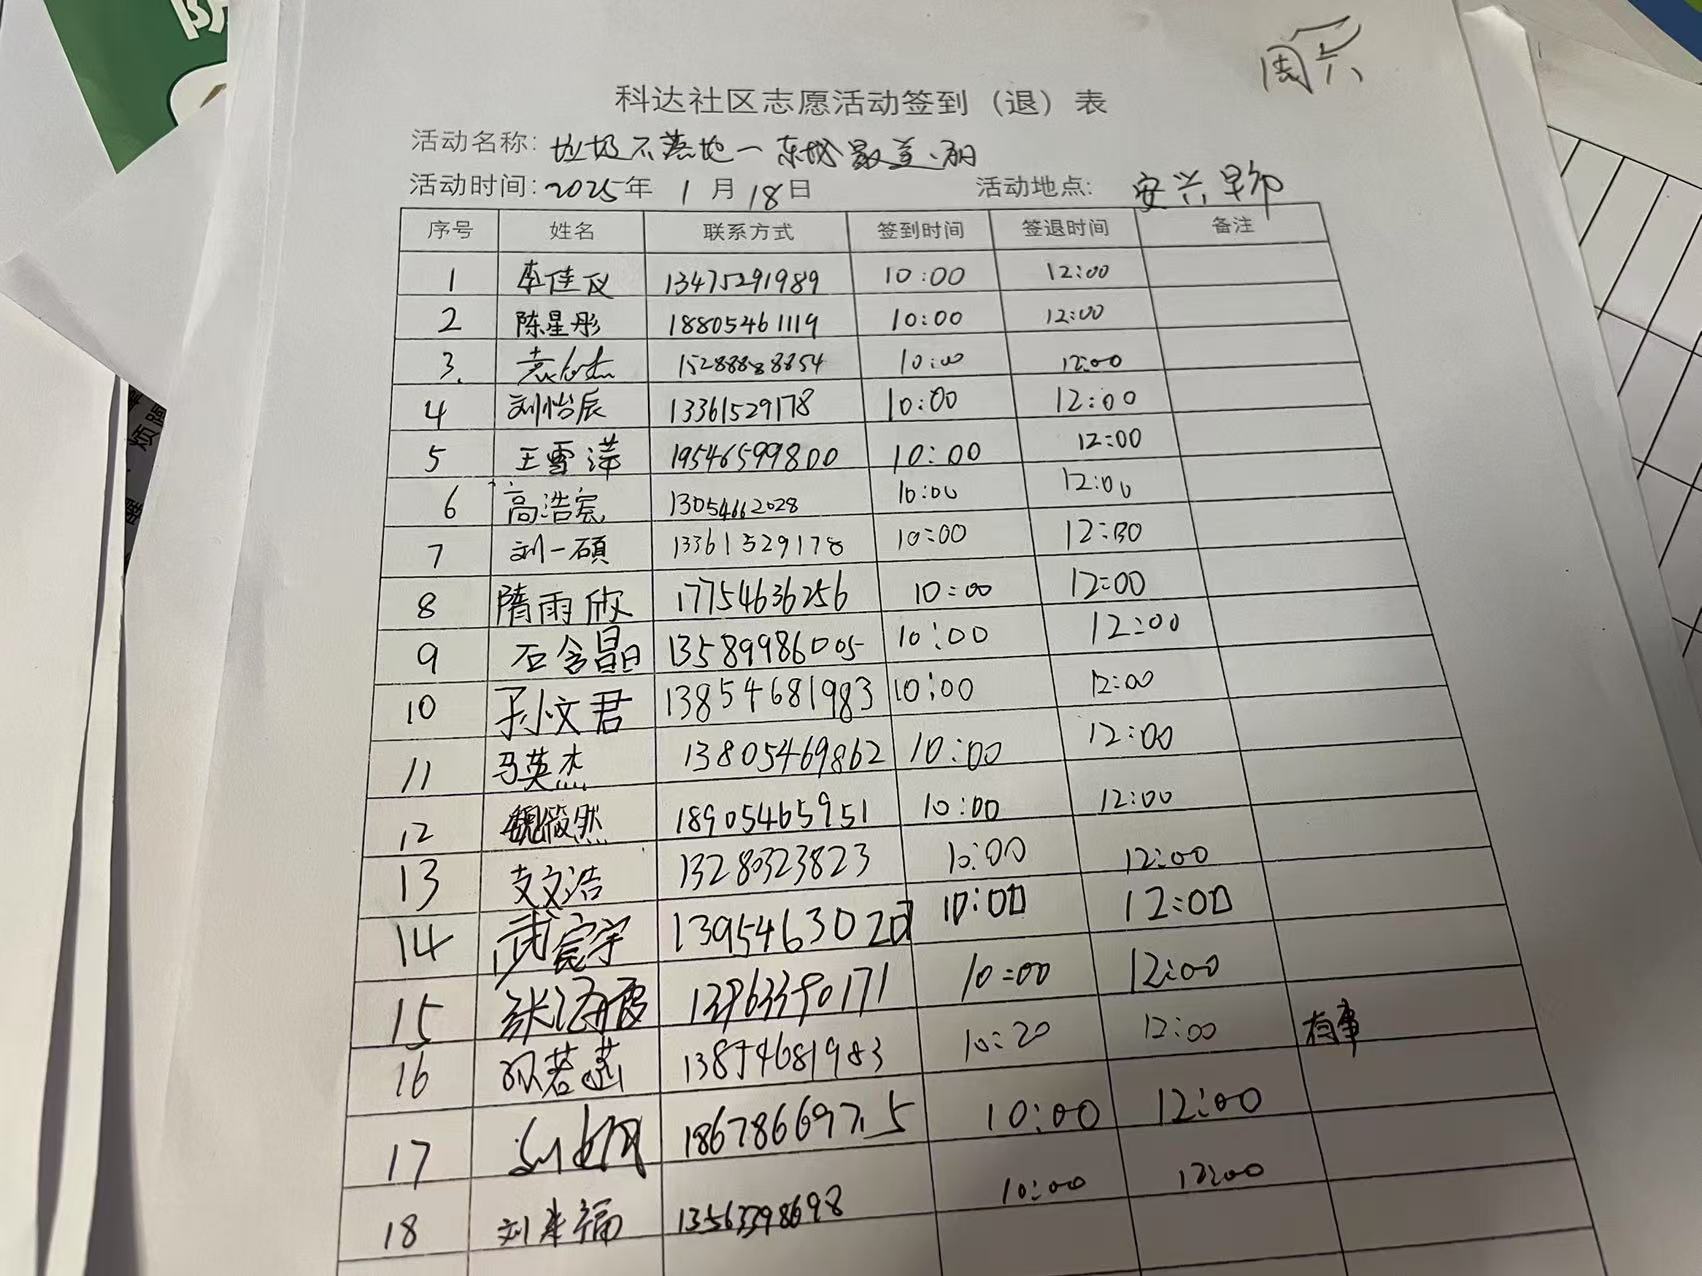 周六
科达社区志愿活动签到（退）表
活动名称: 垃圾不落地一东城最美丽
活动时间: 2025年 1月18日 活动地点: 安兴早市
序号 姓名 联系方式 签到时间 签退时间 备注
1 李佳仪 13475291989 10:00 12:00
2 陈星彤 18805461119 10:00 12:00
3. 15288888854 10:00 12:00
4 刘怡辰 13361529178 10:00 12:00
5 王雪洋 19546599800 10:00 12:00
6 高浩宸 13054662028 10:00 12:00
7 刘一硕 13361529178 10:00 12:00
8 隋雨欣 17754636256 10:00 12:00
9 石含 13589986005 10:00 12:00
10 孙文君 13854681983 10:00 12:00
11 马英杰 13805469862 10:00 12:00
12 魏筱然 18905465951 10:00 12:00
13 支文浩 13280323823 10:00 12:00
14 武宸宇 10:00 12:00
15 张海霞 10:00 12:00
16 孙若涵 13854681983 10:20 12:00 有事
17 10:00 12:00
18 刘来福 10:00 12:00